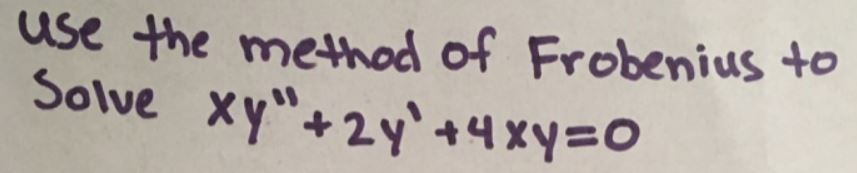 use the method of Frobenius to
Solve xy"+2y'+4xy=0